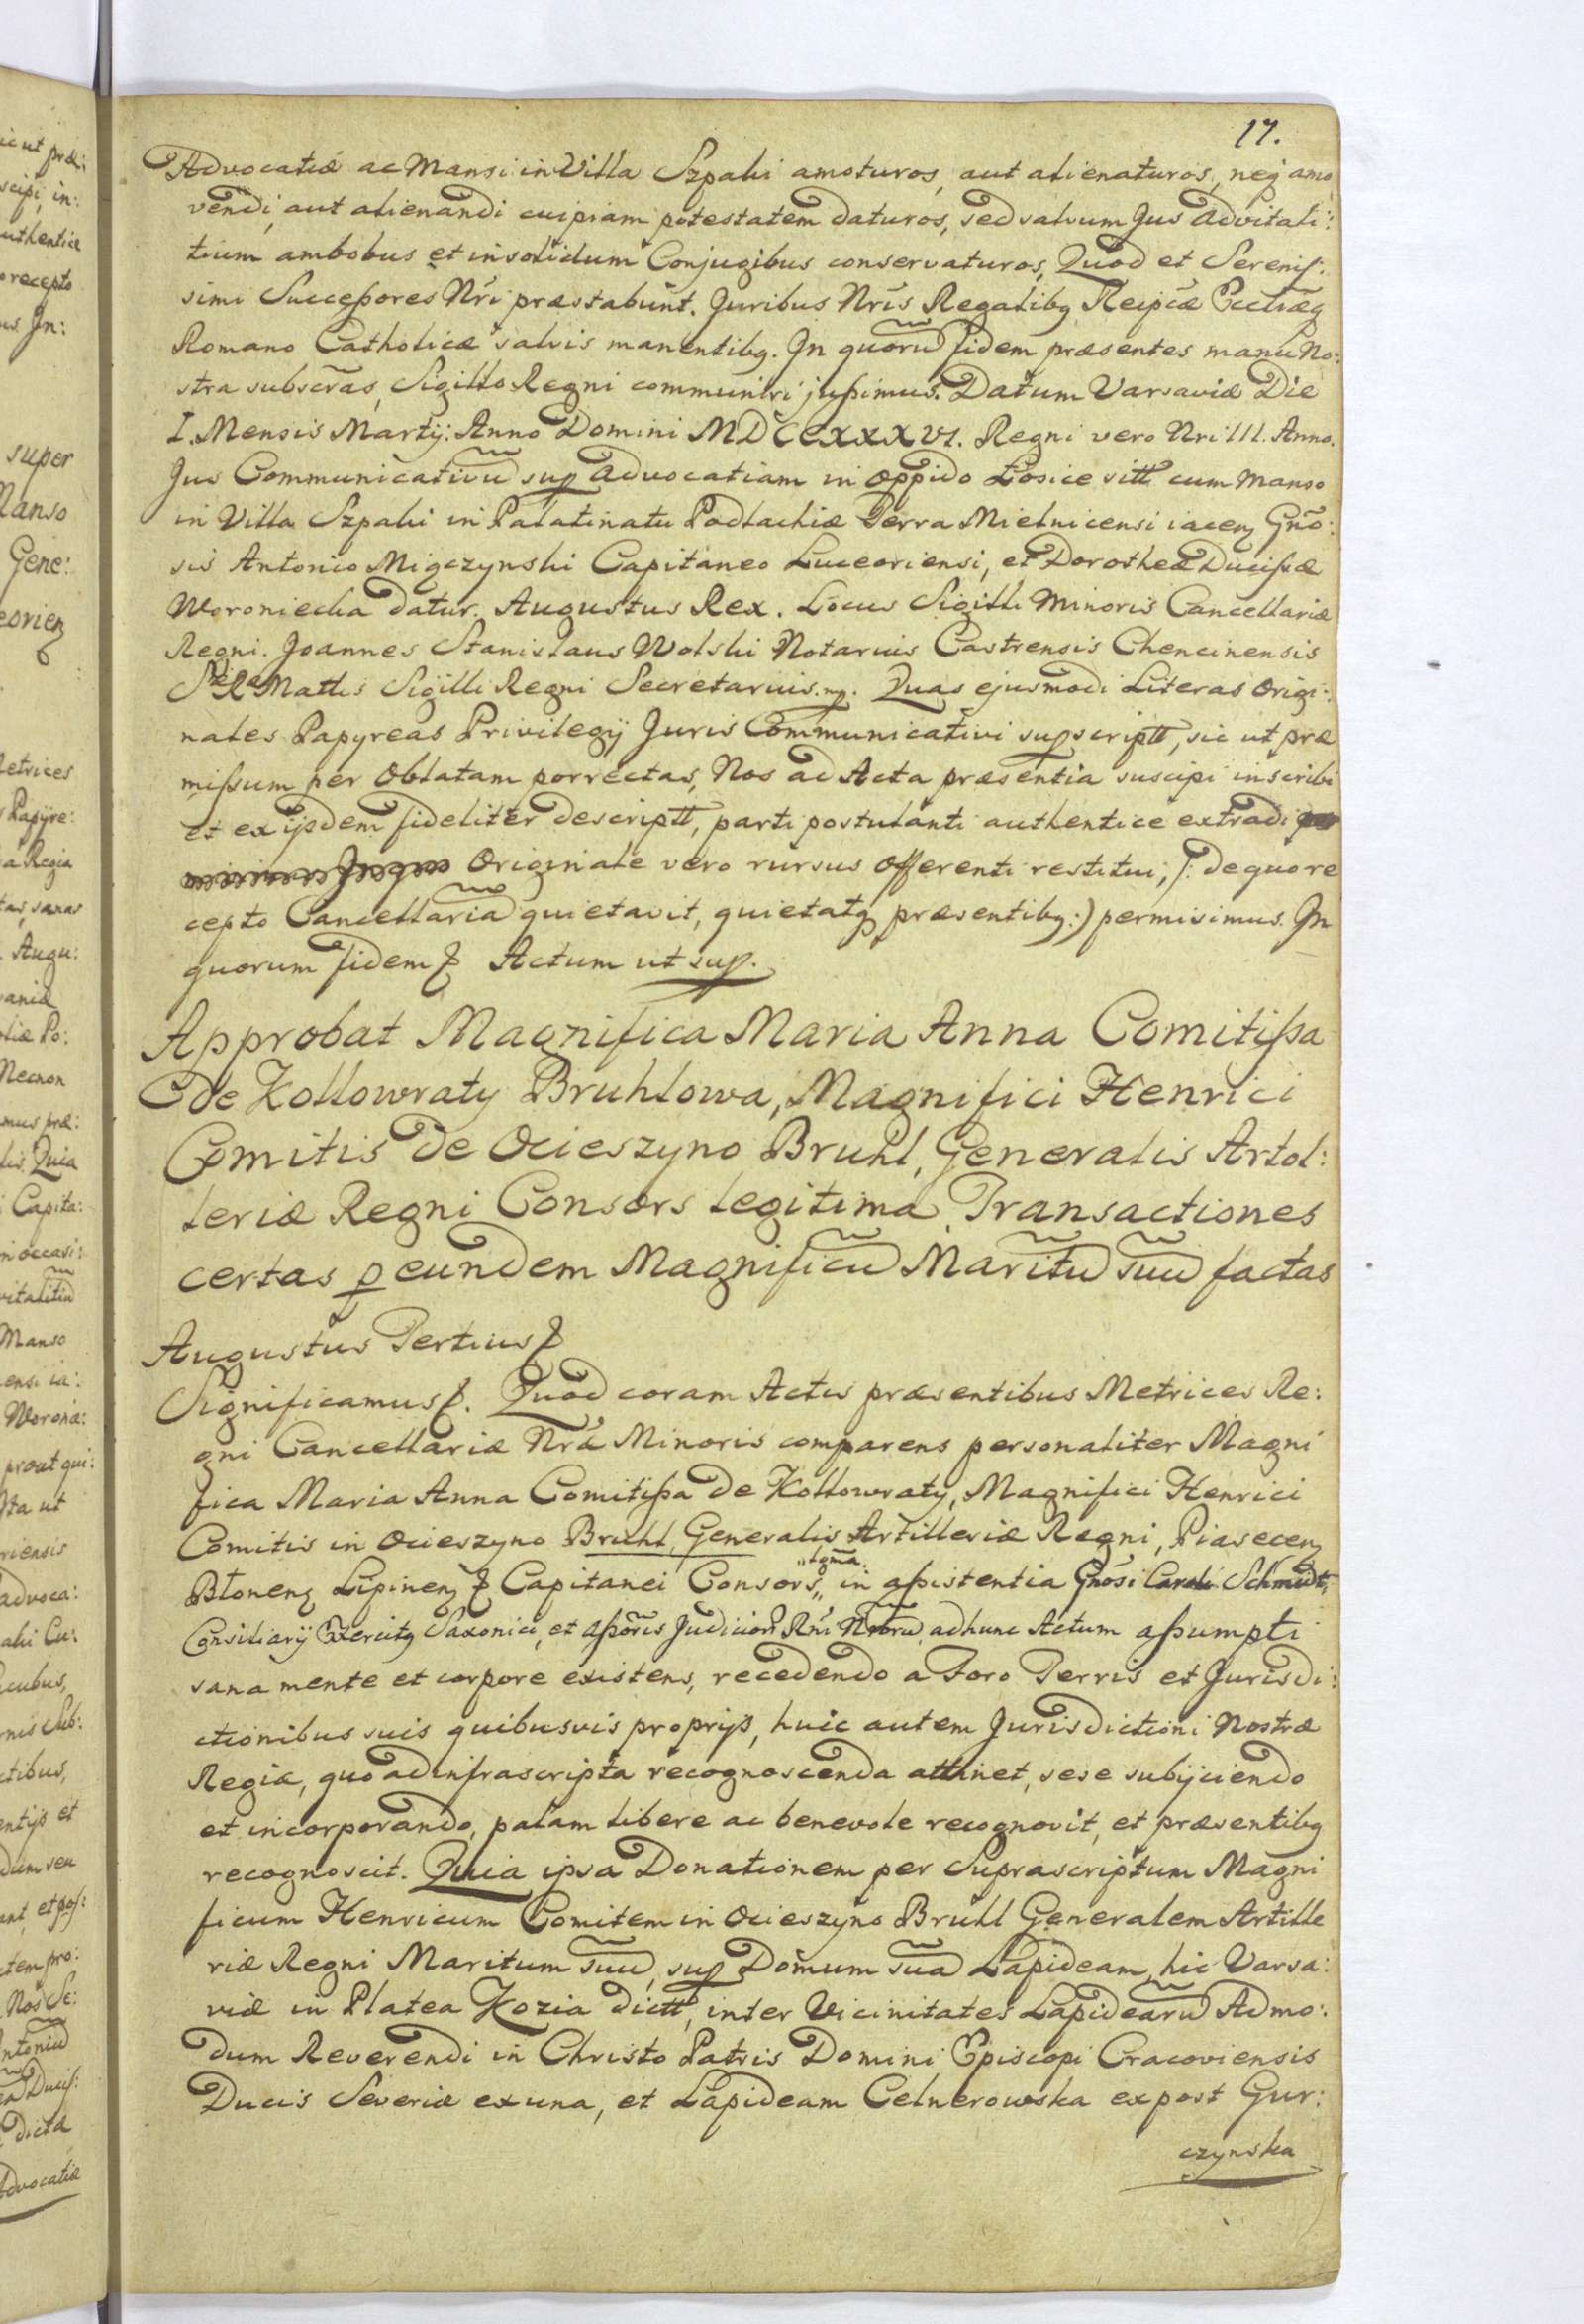 17.
Advocatiæ ac Mansi in Villa Szpaki amoturos, aut alienaturos, neq amo
vendi, aut alienandi cuipiam potestatem daturos, sed salvum Jus Advitali:
tium ambobus et insolidum Conjugibus conservaturos, Quod et Serenis:
simi Successores Nri præstabunt. Juribus Nris Regalibq Reipcæ Eccliæq
Romano Catholicæ salvis manentibq. In quorũ fidem præsentes manu No:
stra subscras, Sigillo Regni communiri jussimus. Datum Varsaviæ Die
I. Mensis Martij: Anno Domini MDCCXXXVI. Regni vero Nri III. Anno.
Jus Communicativũ sup Advocatiam in Oppido Łosice sitt cum Manso
in Villa Szpaki in Palatinatu Podlachiæ Terra Mielnicensi iacen Gño:
sis Antonio Miączynski Capitaneo Luceoriensi, et Dorotheæ Ducissæ
Woroniecka datur. Augustus Rex. Locus Sigilli Minoris Cancellariæ
Regni. Joannes Stanislaus Wolski Notarius Castrensis Chencinensis
S Ræ Mattis Sigilli Regni Secretarius. mp. Quas ejusmodi Literas Origi:
nales Papyreas Privilegÿ Juris Communicativi supscriptt, sic ut præ
missum per Oblatam porrectas, Nos ad Acta præsentia suscipi inscribi
et ex ijsdem fideliter descriptt, parti postulanti authentice extradi
Originale vero rursus offerenti restitui, /: de quo re
cepto Cancellariã quietavit, quietatq præsentibq :) permisimus. In
quorum fidem Actum ut sup.
Approbat Magnifica Maria Anna Comitissa
de Kollowraty Bruhlowa, Magnifici Henrici
Comitis de Ocieszyno Bruhl, Generalis Artol:
leriæ Regni Consors legitima, Transactiones
certas p eundem Magnificũ Maritũ suũ factas
Augustus Tertius
Significamus. Quod coram Actis præsentibus Metrices Re:
gni Cancellariæ Nræ Minoris comparens personaliter Magni
fica Maria Anna Comitissa de Kollowraty, Magnifici Henrici
Comitis in Ocieszyno Bruhl, Generalis Artilleriæ Regni, Piasecen
Błonen Lipinen Capitanei Consors "lgma. in assistentia Gnosi Caroli Schmidt,
Consiliarÿ Exercitq Saxonici, et Assoris Judicior Rni Nrorũ, ad hunc Actum assumpti
sana mente et corpore existens, recedendo a Foro Terris et Jurisdi:
ctionibus suis quibusvis proprijs, huic autem Jurisdictioni Nostræ
Regiæ, quo ad infrascripta recognoscenda attinet, sese subijciendo
et incorporando, palam libere ac benevole recognovit, et præsentibq
recognoscit. Quia ipsa Donationem per Suprascriptum Magni
ficum Henricum Comitem in Ocieszyno Bruhl Generalem Artille
riæ Regni Maritum suũ, sup Domum suã Lapideam, hic Varsa:
viæ in Platea Kozia dictt, inter Vicinitates Lapidearũ Admo:
dum Reverendi in Christo Patris Domini Episcopi Cracoviensis
Ducis Severiæ ex una, et Lapideam Celnerowska ex post Gur:
czynska